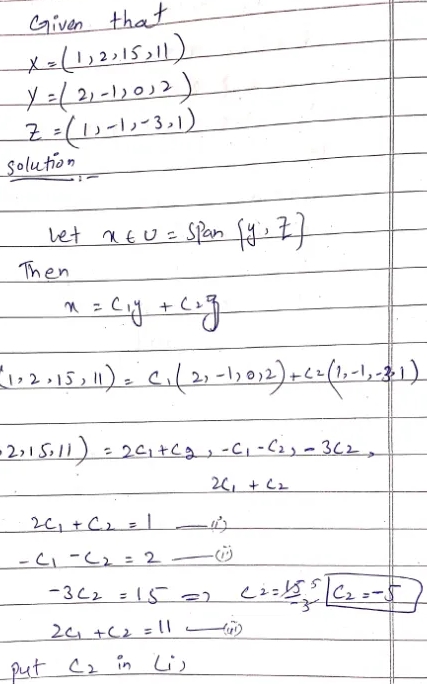 Given that
X = (1, 2, 15, 11)
Y = (2, -1, 0, 2)
Z = (1, -1, -3, 1)
Solution :-
Let x ∈ U = Span {y, z}
Then
x = C₁y + C₂z
(1, 2, 15, 11) = C₁(2, -1, 0, 2) + C₂(1, -1, -3, 1)
2, 15, 11) = 2C₁ + C₂, -C₁ - C₂, -3C₂,
2C₁ + C₂
2C₁ + C₂ = 1 — (i)
-C₁ - C₂ = 2 — (ii)
-3C₂ = 15 => C₂ = 15/-3 5 C₂ = -5
2C₁ + C₂ = 11 — (iii)
put C₂ in (i)